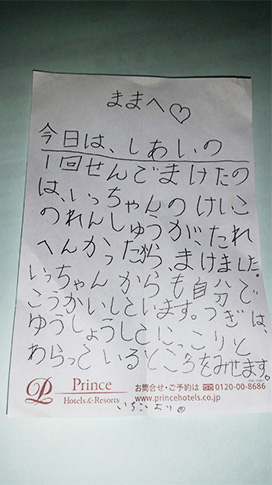 ままへ♡
今日は、しあいの
1回せんでまけたの
は、いっちゃんのけいこ
のれんしゅうが、たれ
へんかったから、まけました。
いっちゃんからも自分で
こうかいしています。つぎは、
ゆうしょうしてにっこりと
わらっているところをみせます。
Prince
Hotels & Resorts
お問合せ・ご予約は 0120-00-8686
www.princehotels.co.jp
いちこより♡